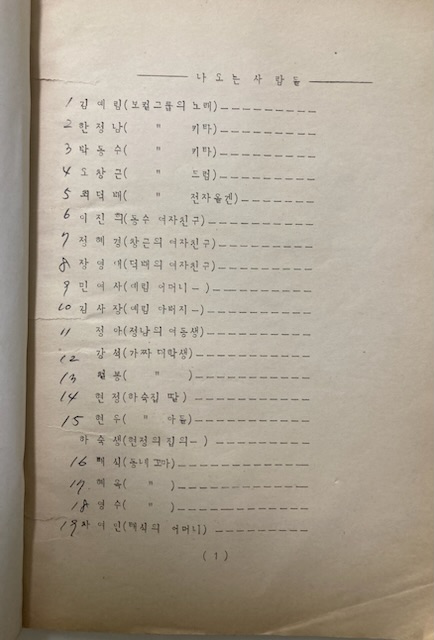 나오는 사람들
1 김예림(보컬그룹의 노래)
2 한정남( " 키타)
3 박동수( " 키타)
4 오창근( " 드럼)
5 덕배( " 전자올겐)
6 이진희(동수 여자친구)
7 정혜경(창근의 여자친구)
8 장영애(덕배의 여자친구)
9 민여사(예림 어머니-)
10 김사장(예림 아버지-)
11 정아(정남의 여동생)
12 강석(가짜 대학생)
13 봉( " )
14 현정(하숙집 딸)
15 현우( " 아들)
하숙생(현정의 집의-)
16 식(동네 꼬마)
17 혜옥( " )
18 영수( " )
19 여인( 식의 어머니)
(1)